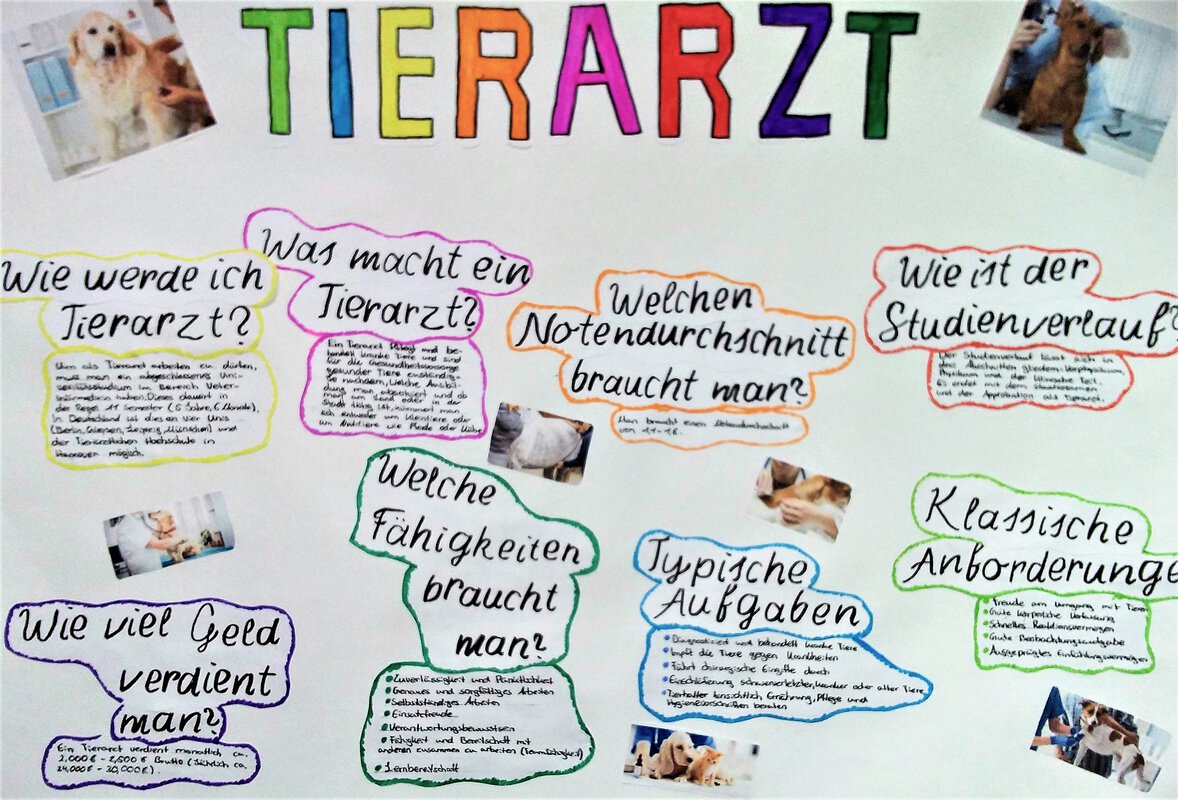 TIERARZT
Wie werde ich
Tierarzt?
Um als Tierarzt arbeiten zu dürfen,
muss man ein abgeschlossenes Uni-
versitätsstudium im Bereich Veter-
inärmedizin haben. Dieses dauert in
der Regel 11 Semester (5 Jahre, 6 Monate).
In Deutschland ist dies an vier Unis
(Berlin, Giessen, Leipzig, München) und
der Tierärztlichen Hochschule in
Hannover möglich.
Was macht ein
Tierarzt?
Ein Tierarzt pflegt und be-
handelt kranke Tiere und sind
für die Gesundheitsvorsorge
gesunder Tiere zuständig.
Je nachdem, welche Ausbil-
dung man absolviert und ob
man am Land oder in der
Stadt tätig ist, kümmert man
sich entweder um Kleintiere oder
um Nutztiere wie Pferde oder Kühe
Welchen
Notendurchschnitt
braucht man?
Man braucht einen Notendurchschnitt
von 1,1 - 1,6.
Wie ist der
Studienverlauf?
Der Studienverlauf lässt sich in
drei Abschnitte gliedern: Vorphysikum,
Physikum und der klinische Teil.
Es endet mit dem Staatsexamen
und der Approbation als Tierarzt.
Wie viel Geld
verdient
man?
Ein Tierarzt verdient monatlich ca.
2,000€ - 2,500€ Brutto (Jährlich ca.
24,000€ - 30,000€).
Welche
Fähigkeiten
braucht
man?
Zuverlässigkeit und Pünktlichkeit
Genaues und sorgfältiges Arbeiten
Selbstständiges Arbeiten
Einsatzfreude
Verantwortungsbewusstsein
Fähigkeit und Bereitschaft mit
anderen zusammen zu arbeiten (Teamfähigkeit)
Lernbereitschaft
Typische
Aufgaben
Diagnostiziert und behandelt kranke Tiere
Impft die Tiere gegen Krankheiten
Führt chirurgische Eingriffe durch
Einschläferung schwerverletzter, kranker oder alter Tiere
Tierhalter hinsichtlich Ernährung, Pflege und
Hygienevorschriften beraten
Klassische
Anforderunge
Freude am Umgang mit Tieren
Gute körperliche Verfassung
Schnelles Reaktionsvermögen
Gute Beobachtungsaufgabe
Ausgeprägtes Einfühlungsvermögen